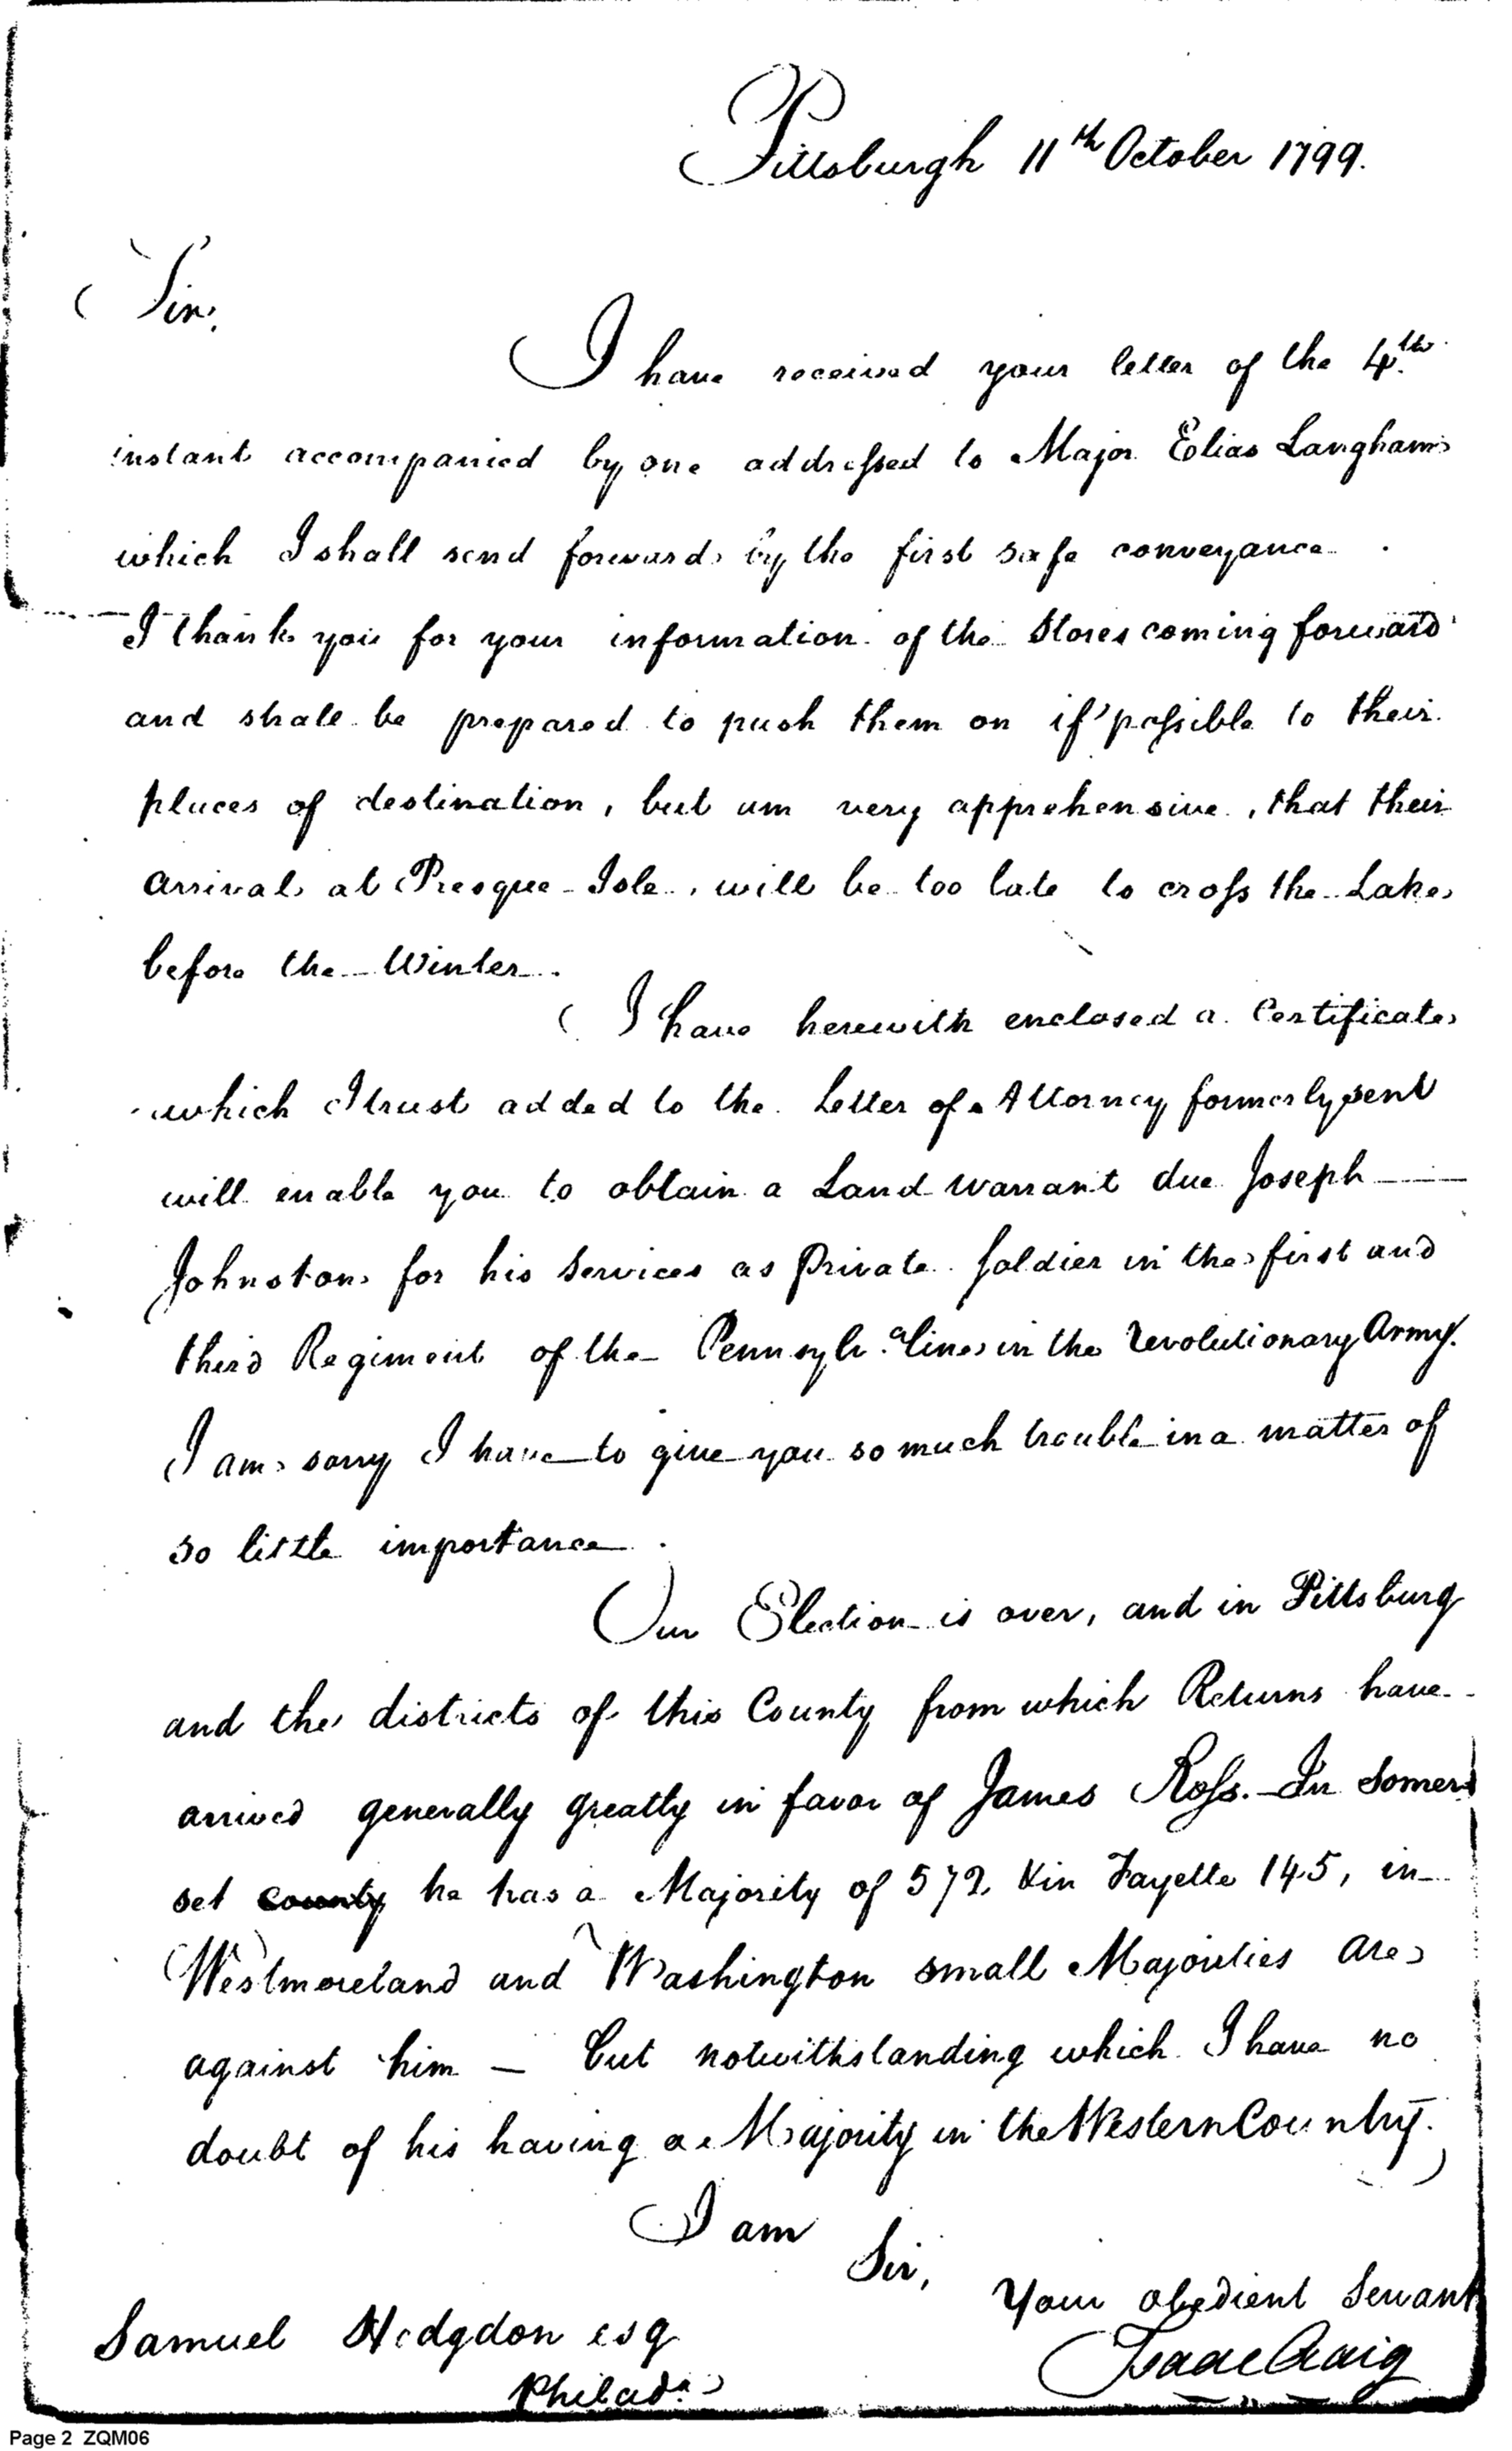 Pittsburgh 11th October 1799.
Sir,
I have received your letter of the 4th
instant accompanied by one addressed to Major Elias Langham
which I shall send forward by the first safe conveyance.
I thank you for your information of the Stores coming forward
and shall be prepared to push them on if possible to their
places of destination, but am very apprehensive, that their
arrival at Presque-Isle, will be too late to cross the Lake
before the Winter.
I have herewith enclosed a Certificate
which I trust added to the Letter of Attorney formerly sent
will enable you to obtain a Land warrant due Joseph
Johnston for his Services as private Soldier in the first and
third Regiment of the Pennsylv.a line in the revolutionary Army.
I am sorry I have to give you so much trouble in a matter of
so little importance.
Our Election is over, and in Pittsburg
and the districts of this County from which Returns have
arrived generally greatly in favor of James Ross. - In Somer
set county he has a Majority of 572, & in Fayette 145, in
Westmoreland and Washington small Majorities are
against him - but notwithstanding which I have no
doubt of his having a Majority in the Western Country.
I am
Sir,
Your obedient Servant
Isaac Craig
Samuel Hodgdon esq
Philad.a
Page 2 ZQM06